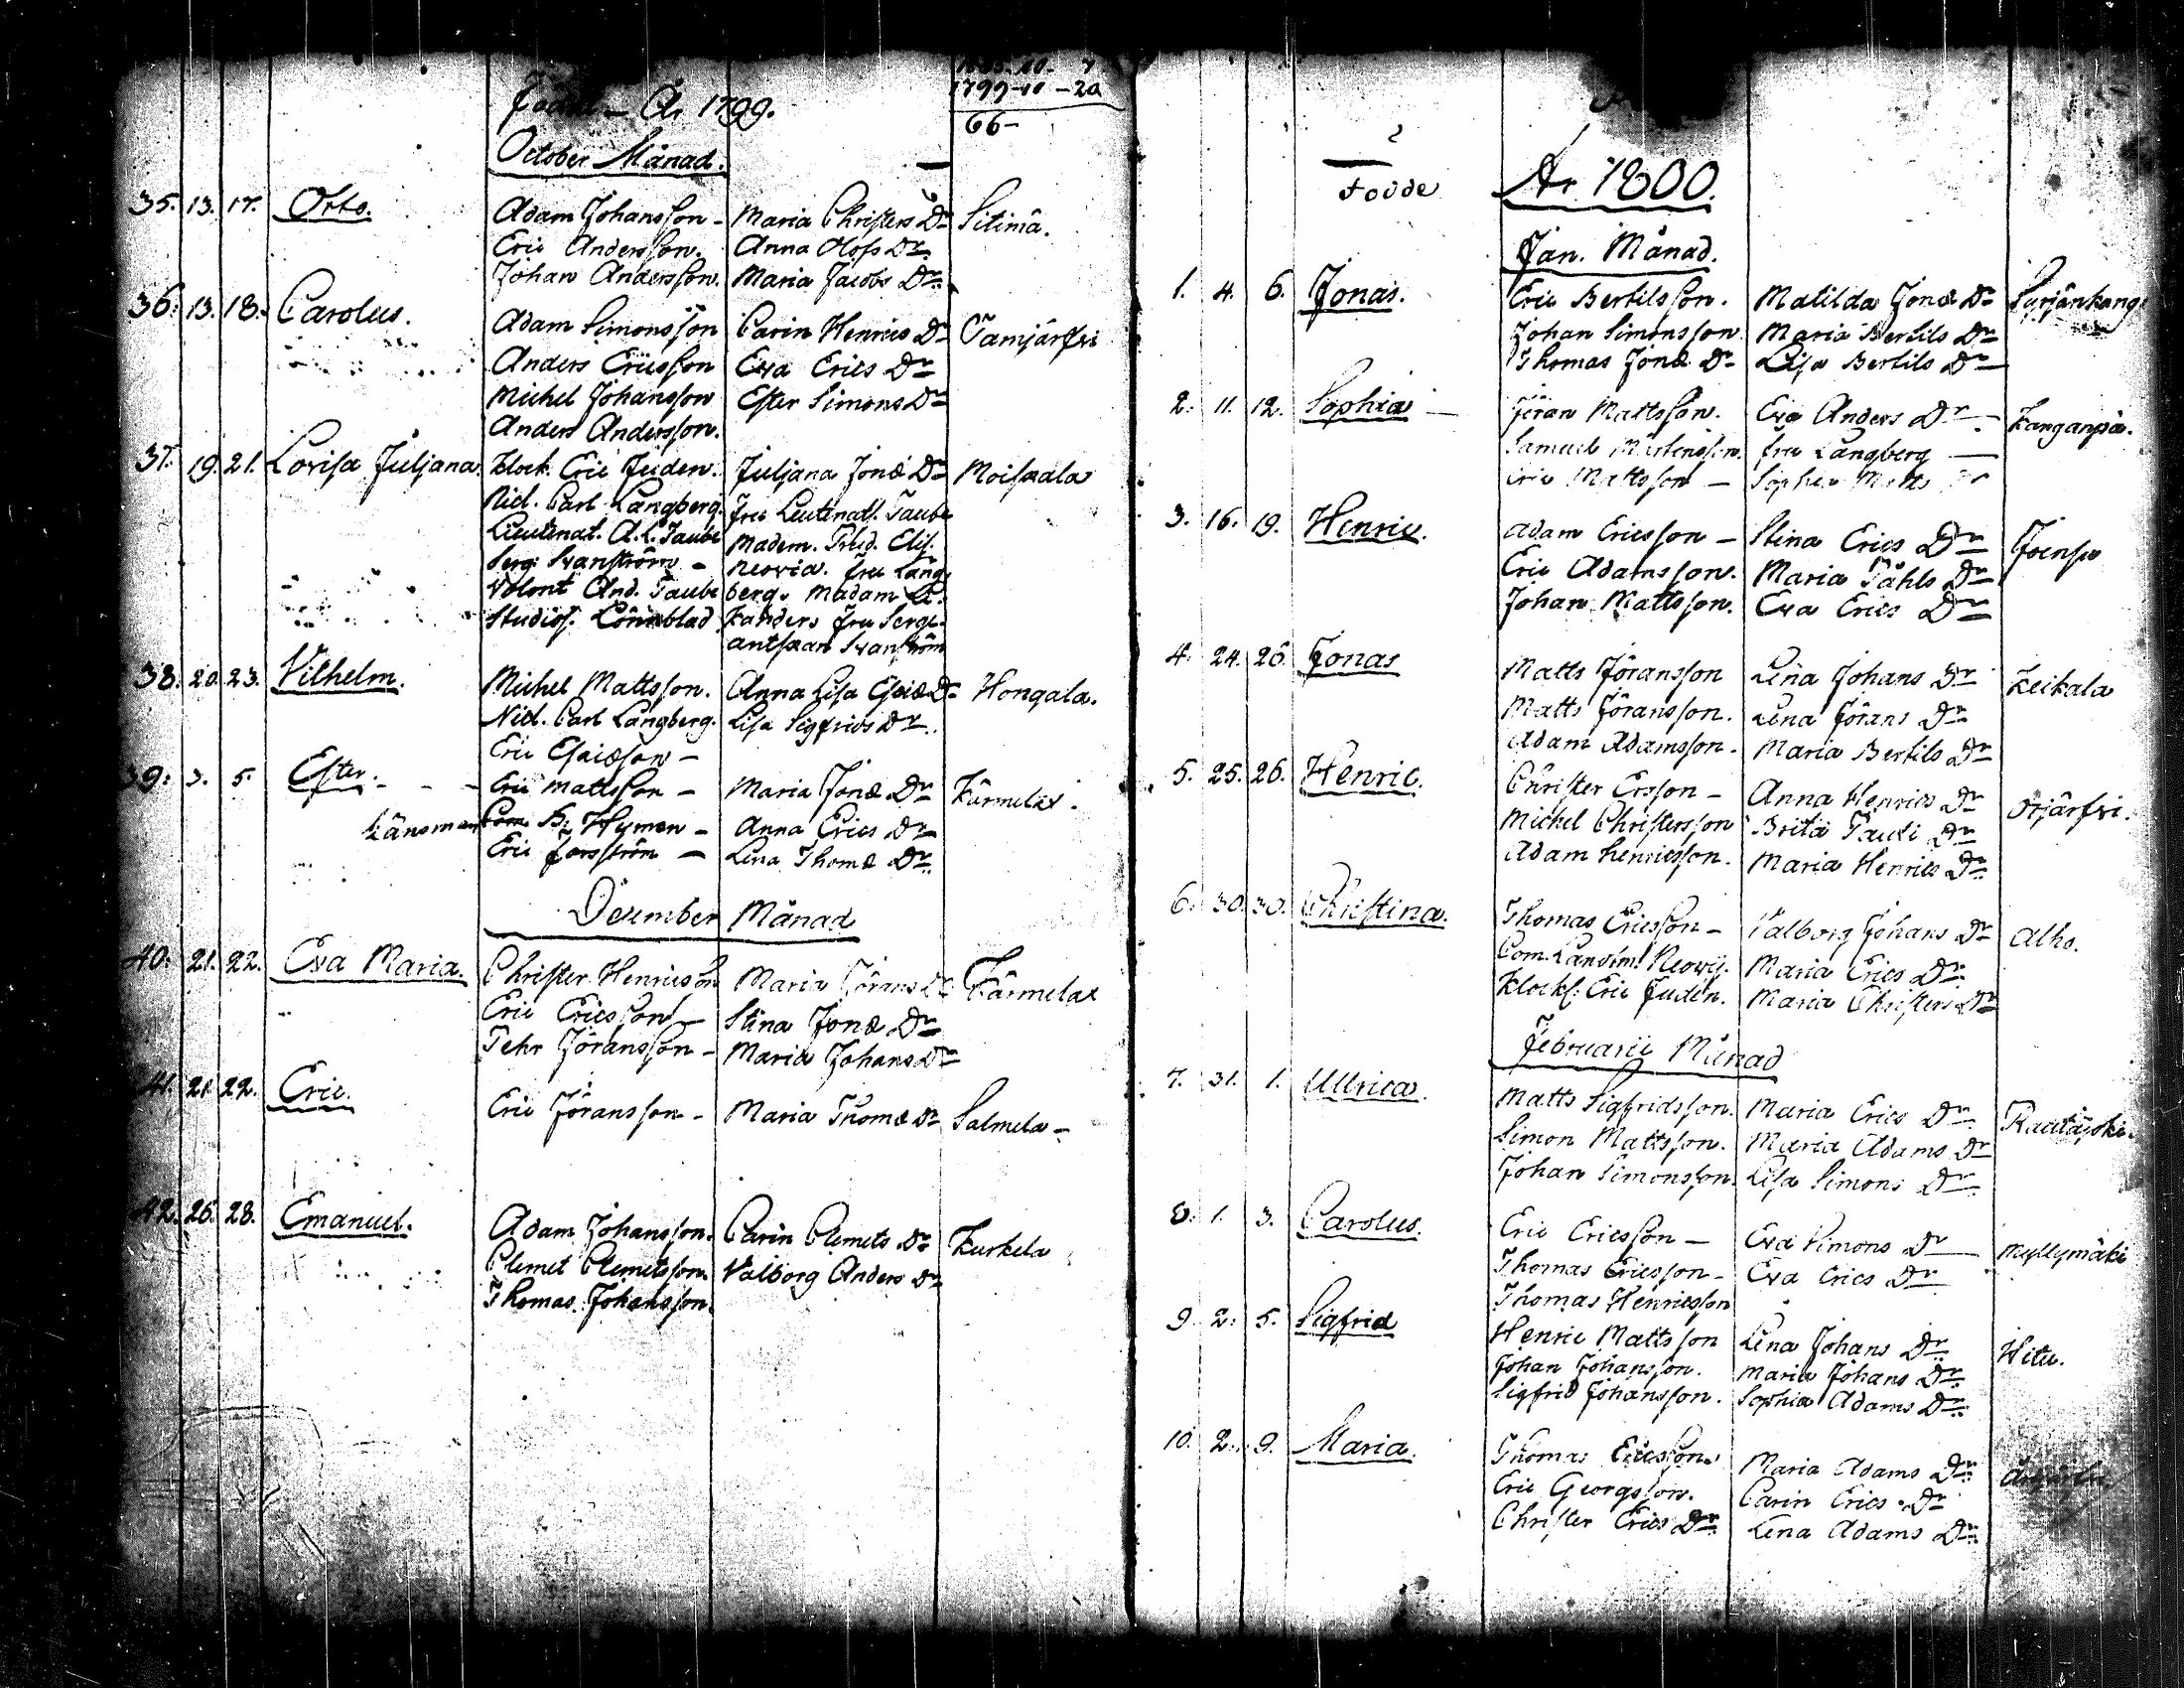 Födde År 1799.
1799-10-20
66-
October Månad.
35. 13. 17. Otto. Adam Johansson - Maria Christers Dr Sitimä.
Eric Andersson. Anna Olofs Dr.
Johan Andersson. Maria Jacobs Dr.
36. 13. 18. Carolus. Adam Simonsson Carin Henrics Dr Tamjärfvi
Anders Ericsson Eva Erics Dr
Michel Johansson Ester Simons Dr
Anders Andersson.
37. 19. 21. Lovisa Juljana. Klock. Eric Juden. Juljana Jonæ Dr Moispala
Nid. Carl Långberg. Fru Leutenatl. Taube
Lieutenat. A. L. Taube Madem. Fred. Elis.
Serg: Svanström - Neovia. fru Lång
Volont And. Taube berg. Madam Le.
Studios. Lönnblad kanders fru Serge
antskan Svanström
38. 20. 23. Vilhelm. Michel Mattsson. Anna Lisa Esaiæ Dr Hongala.
Nid. Carl Långberg. Lisa Sigfrids Dr.
Eric Esaiæson -
39. 3. 5. Ester. - - - Eric Mattsson - Maria Jonæ Dr Kärmelax.
Länsman Com. Hymen - Anna Erics Dr
Eric Forsström - Lena Thomæ Dr.
December Månad
40. 21. 22. Eva Maria. Christer Henricsson Maria Jörans Dr Kärmelax
Eric Ericsson - Stina Jonæ Dr
Pehr Jöransson - Maria Johans Dr
41. 21. 22. Eric. Eric Jöransson - Maria Thomæ Dr Salmela -
42. 26. 28. Emanuel. Adam Johansson. Carin Clemets Dr Kurkela
Clemet Clemetsson. Valborg Anders Dr
Thomas Johansson.
Födde År 1800.
Jan. Månad.
1. 4. 6. Jonas. Eric Bertilsson. Matilda Jonæ Dr
Johan Simonsson Maria Bertils Dr
Thomas Jonæ Dr Lisa Bertils Dr
2. 11. 12. Sophia - Jöran Mattsson. Eva Anders Dr - Kanganpä.
Samuel Mårtensson. fru Långberg -
Eric Mattsson - Sophia Matts Dr
3. 16. 19. Henric. Adam Ericsson - Stina Erics Dr Joensu
Eric Adamsson. Maria Påhls Dr
Johan Mattsson. Eva Erics Dr
4. 24. 26. Jonas Matts Jöransson Lena Johans Dr Keikala
Matts Jöransson. Lena Jörans Dr
Adam Adamsson. Maria Bertils Dr
5. 25. 26. Henric. Christer Ersson - Anna Henrics Dr Orjärfvi.
Michel Christersson Brita Pauli Dr
Adam Henricsson. Maria Henrics Dr
6. 30. 30. Christina. Thomas Ericsson - Valborg Johans Dr Alho.
Com. Landtm. Neovij. Maria Erics Dr
Klock: Eric Juden. Maria Christers Dr
Februarii Månad
7. 31. 1. Ullrica. Matts Sigfridsson. Maria Erics Dr Raatajoki.
Simon Mattsson. Maria Adams Dr
Johan Simonsson. Lisa Simons Dr
8. 1. 3. Carolus. Eric Ericsson - Eva Simons Dr Myllymäki
Thomas Ericsson - Eva Erics Dr
Thomas Henricsson
9. 2. 5. Sigfrid Henric Mattsson Lena Johans Dr Hitu.
Johan Johansson. Maria Johans Dr
Sigfrid Johansson. Sophia Adams Dr
10. 2. 9. Maria. Thomas Ericsson. Maria Adams Dr
Eric Georgsson. Carin Erics Dr
Christer Erics Dr Lena Adams Dr